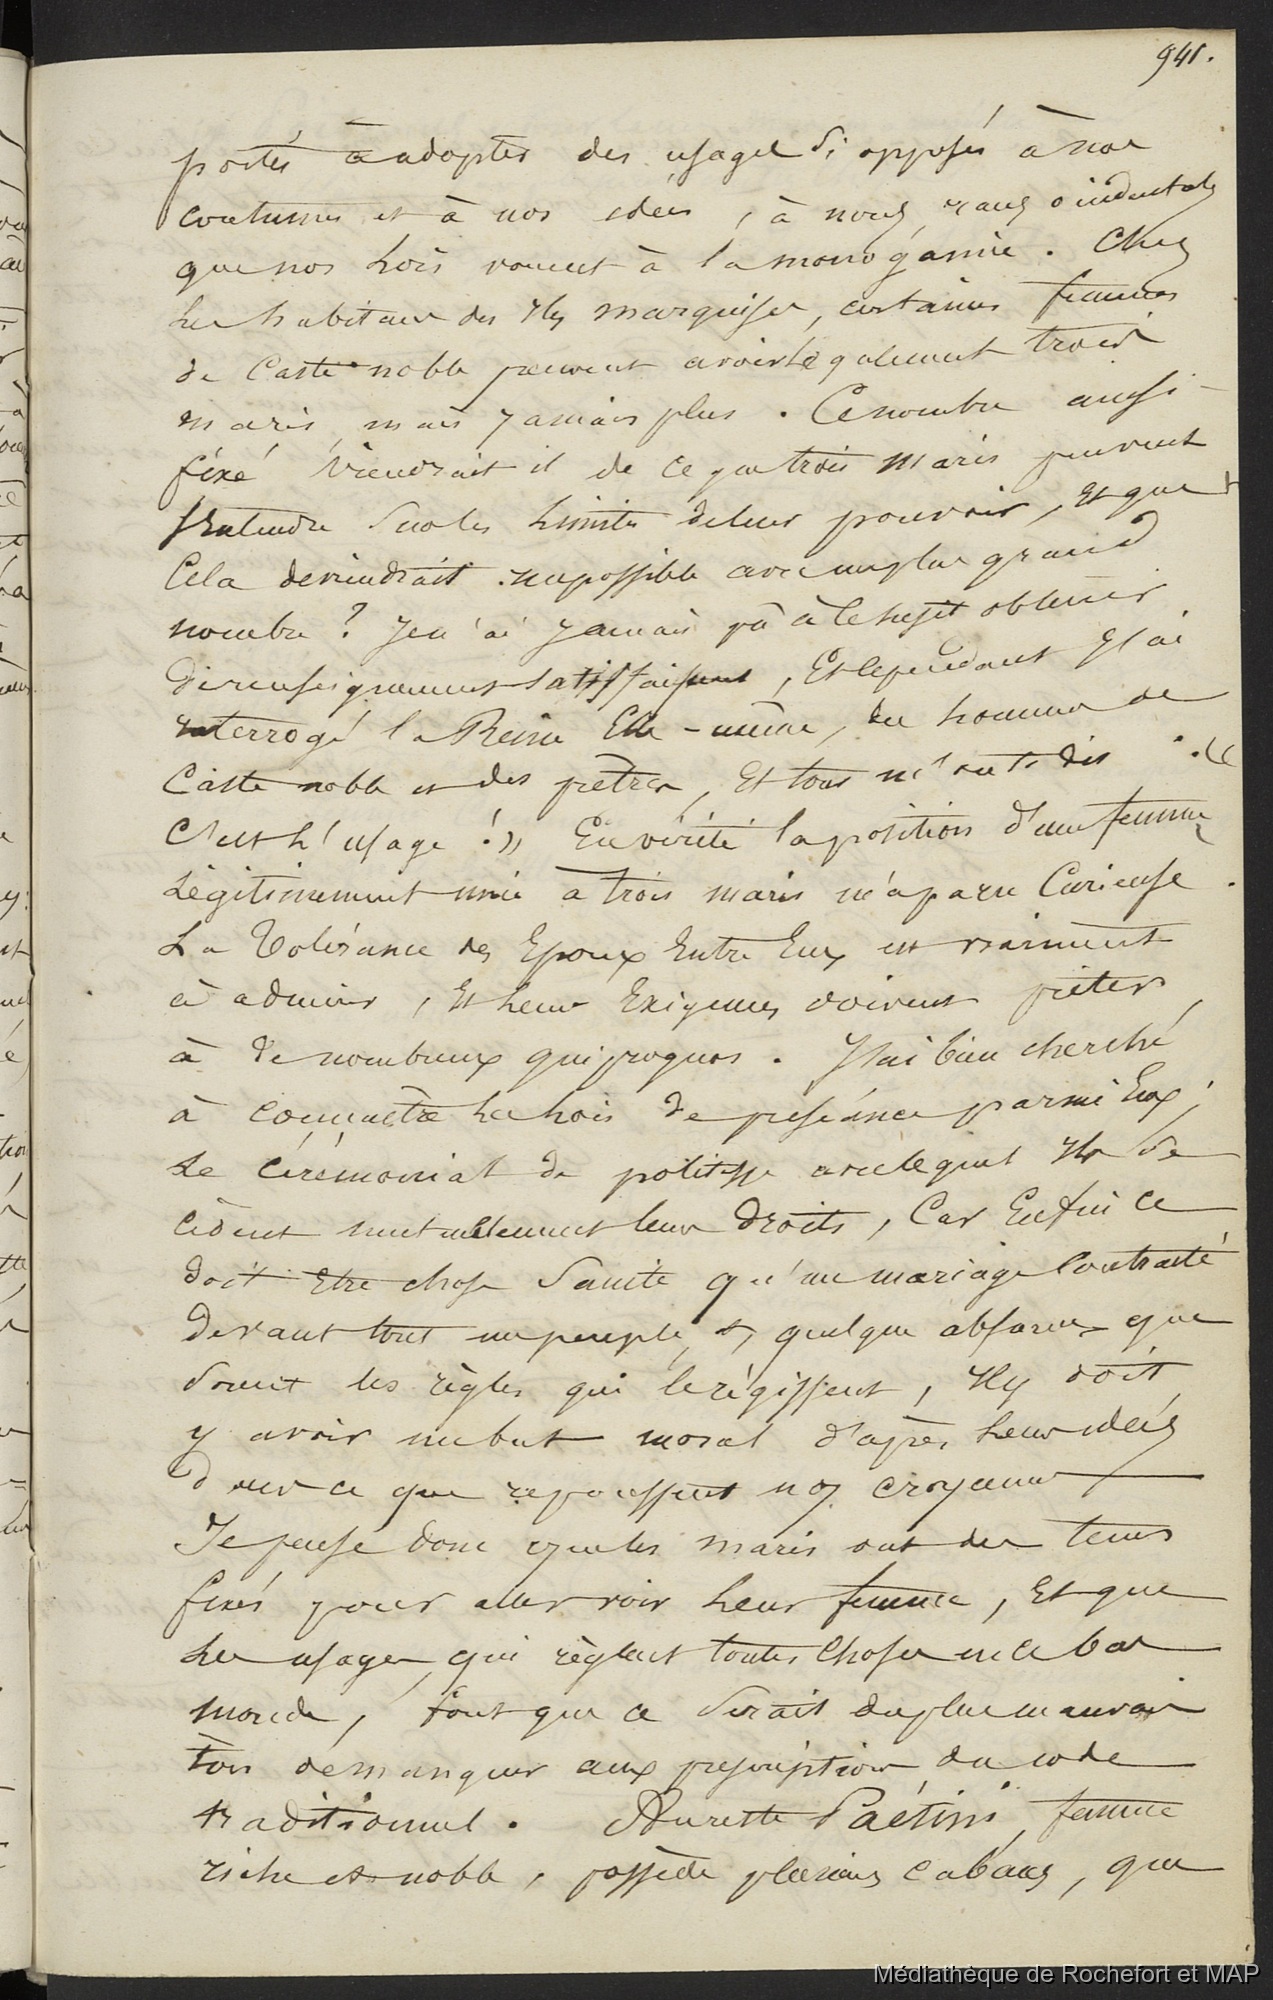 941.
portés à adopter des usages si opposés à nos
coutumes et à nos idées, à nous, gens occidentals
que nos Lois vouent à la monogamie. Chez
Les habitans des Iles marquises, certaines femmes
de Caste noble peuvent avoir légalement trois
maris, mais jamais plus. Ce nombre ainsi
fixé viendrait il de ce que trois maris peuvent
s'entendre sur les Limites de leur pouvoir, Et que
Cela deviendrait impossible avec un plus grand
nombre ? Je n'ai jamais pu à ce sujet obtenir
de renseignement satisfaisant, Et cependant J'ai
interrogé la Reine Elle-même, des hommes de
Caste noble et des prêtres, Et tous m'ont dit : «
C'est L'usage ! » En vérité la position d'une femme
Légitimement unie à trois maris m'a paru Curieuse.
La Tolérance des Epoux Entre Eux est vraiment
à admirer, Et Leurs Exigences doivent prêter
à de nombreux quiproquos. J'ai bien cherché
à connaître Les Lois de préséance parmi Eux,
Le Cérémonial de politesse avec lequel Ils se
cèdent mutuellement leurs droits, Car Enfin Ce
doit Etre chose Sainte qu'un mariage Contracté
devant tout un peuple, et, quelque absurdes que
soient les règles qui le régissent, Il y doit
y avoir un but moral d'après Leurs idées
dans ce que repoussent nos croyances
Je pense donc que les maris ont des tems
fixés pour aller voir Leur femme, Et que
Les usages qui règlent toutes Choses en ce bas
monde, font que ce serait du plus mauvais
ton de manquer aux prescriptions du code
traditionnel. Paétini, femme
riche et noble, possède plusieurs Cabanes, que
Médiathèque de Rochefort et MAP